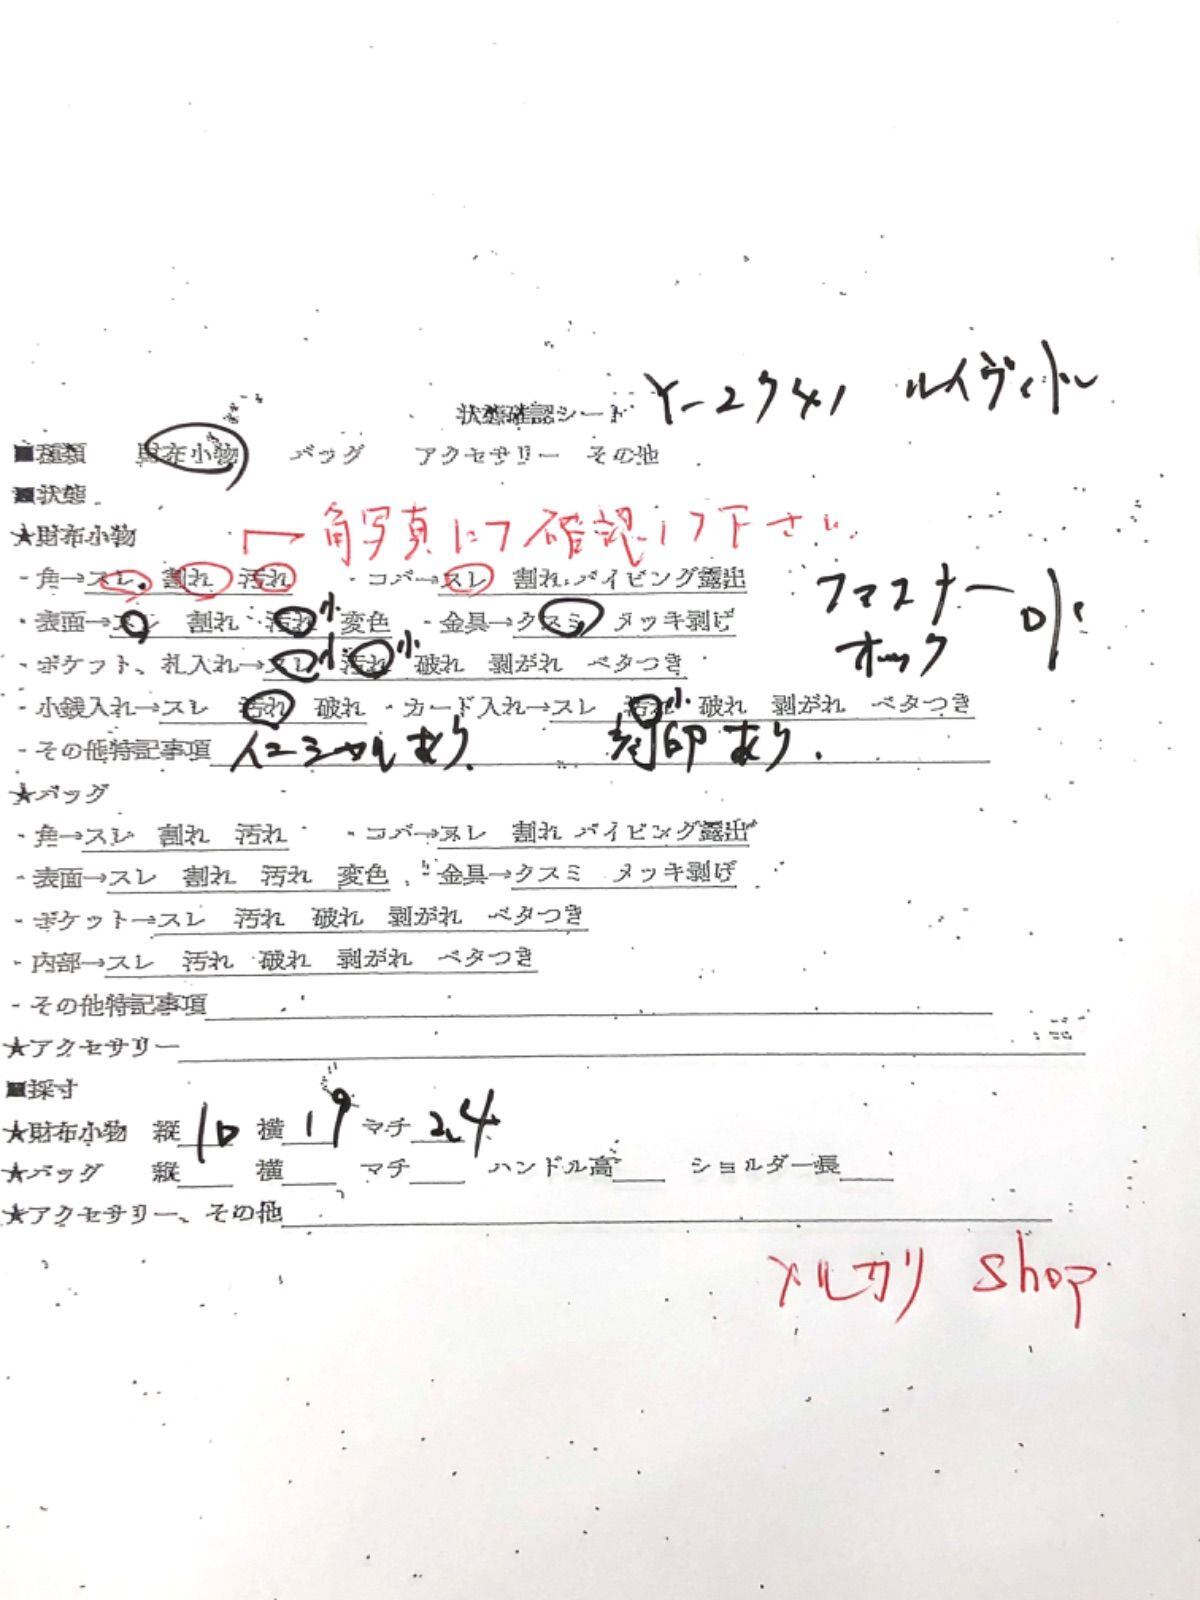 状態確認シート Y-2741 ルイヴィトン
■種類 財布小物 バッグ アクセサリー その他
■状態
★財布小物 角写真にて確認して下さい
・角→スレ 割れ 汚れ ・コバ→スレ 割れ パイピング露出
・表面→スレ 割れ 汚れ 小 変色 ・金具→クスミ メッキ剥げ
ファスナー
ホック
・ポケット、札入れ→スレ 小 汚れ 小 破れ 剥がれ ベタつき
・小銭入れ→スレ 汚れ 破れ ・カード入れ→スレ 汚れ 小 破れ 剥がれ ベタつき
・その他特記事項 イニシャルあり 刻印あり.
★バッグ
・角→スレ 割れ 汚れ ・コバ→スレ 割れ パイピング露出
・表面→スレ 割れ 汚れ 変色 ・金具→クスミ メッキ剥げ
・ポケット→スレ 汚れ 破れ 剥がれ ベタつき
・内部→スレ 汚れ 破れ 剥がれ ベタつき
・その他特記事項
★アクセサリー
■採寸
★財布小物 縦 10 横 19 マチ 2.4
★バッグ 縦 横 マチ ハンドル高 ショルダー長
★アクセサリー、その他
メルカリ shop